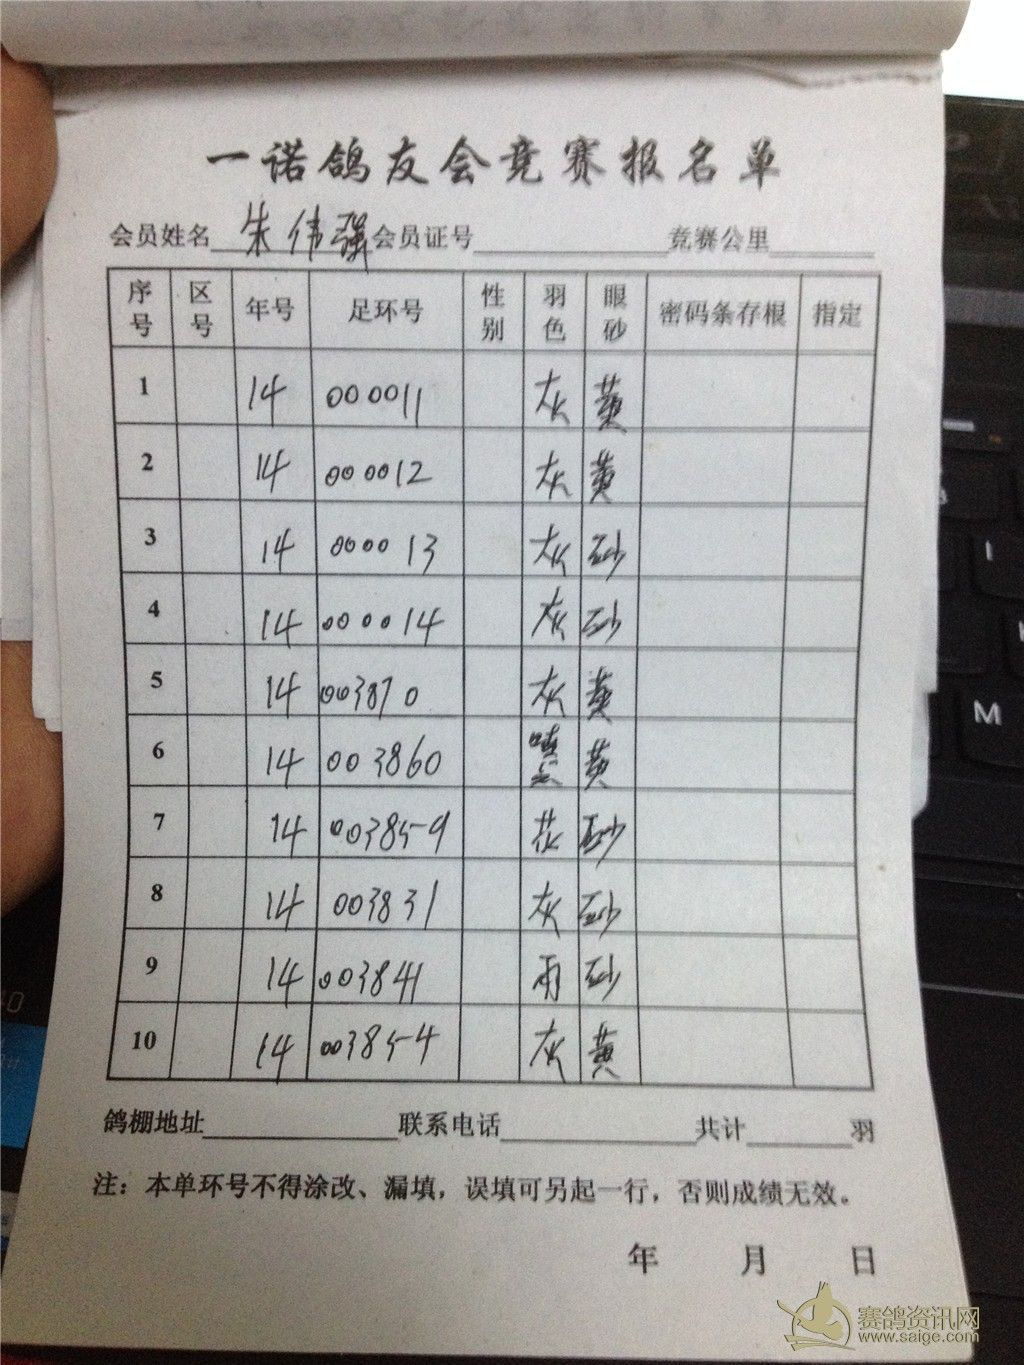 一诺鸽友会竞赛报名单
会员姓名 朱伟强 会员证号 竞赛公里
序号 区号 年号 足环号 性别 羽色 眼砂 密码条存根 指定
1 14 000011 灰 黄
2 14 000012 灰 黄
3 14 000013 灰 砂
4 14 000014 灰 砂
5 14 003870 灰 黄
6 14 003860 黄
7 14 003859 花 砂
8 14 003831 灰 砂
9 14 003841 雨 砂
10 14 003854 灰 黄
鸽棚地址 联系电话 共计 羽
注：本单环号不得涂改、漏填，误填可另起一行，否则成绩无效。
年 月 日
赛鸽资讯网
www.saige.com
M